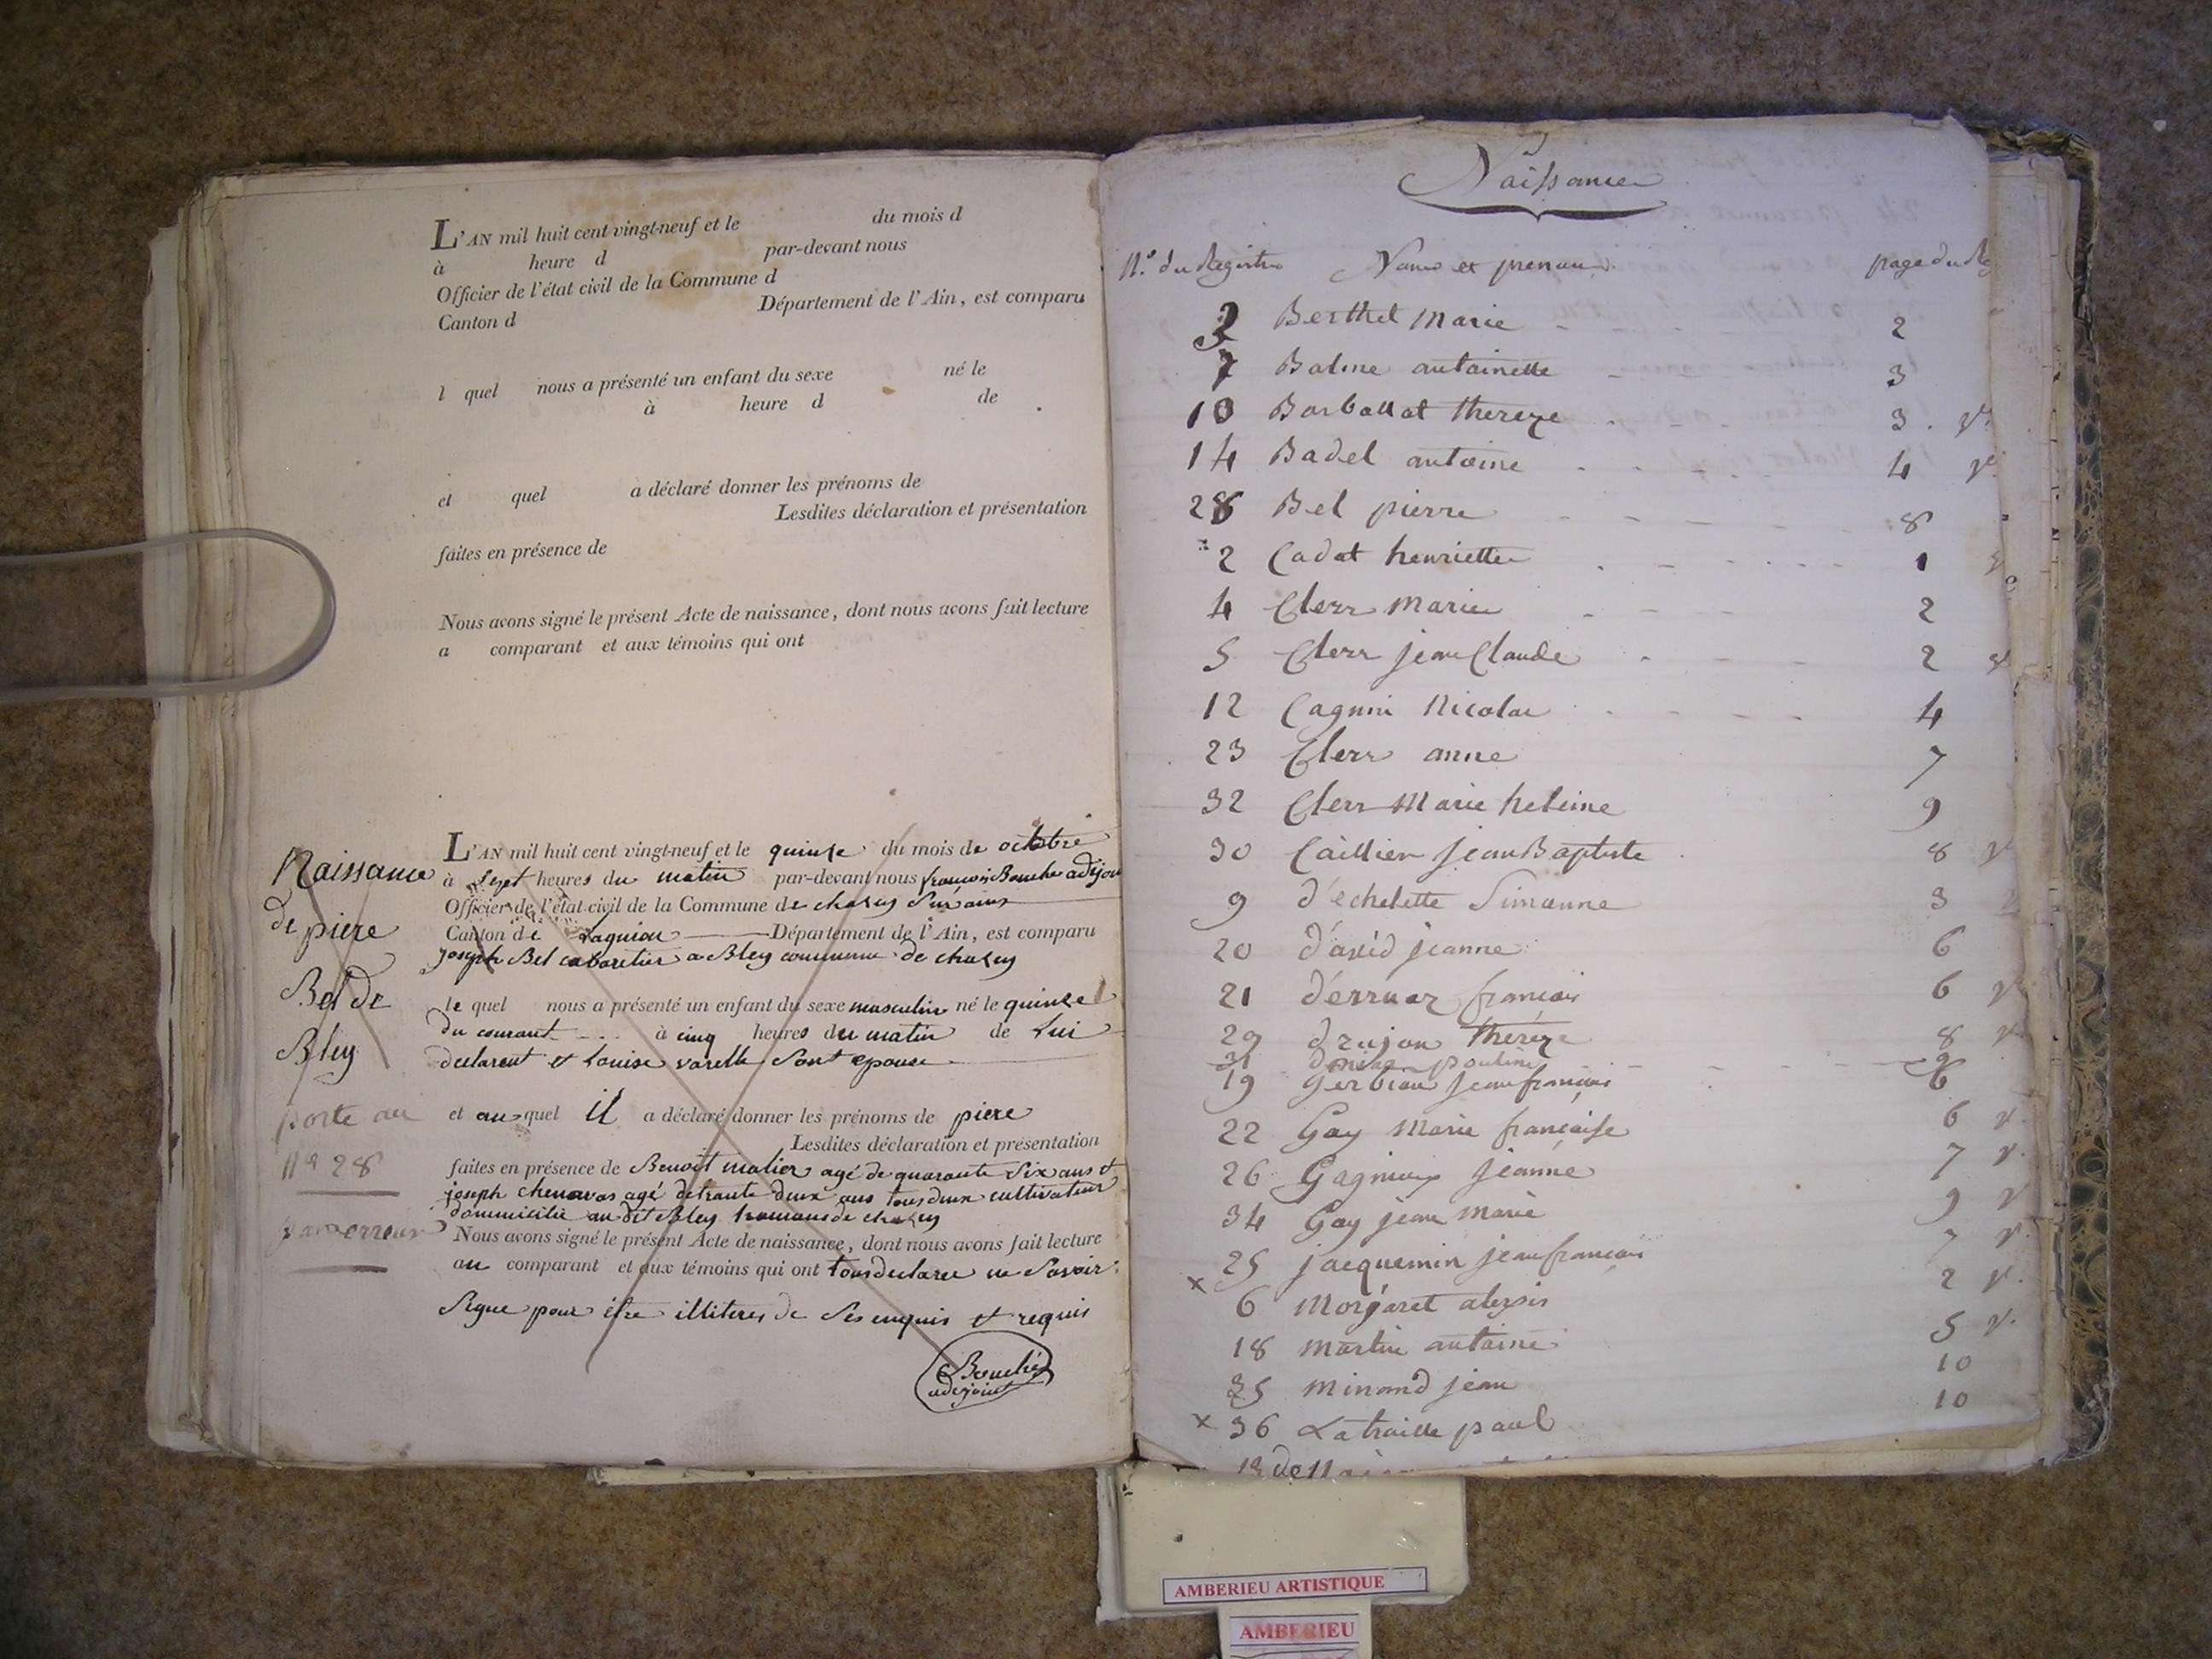 L'AN mil huit cent vingt-neuf et le du mois d
à heure d par-devant nous
Officier de l'état civil de la Commune d
Canton d Département de l'Ain, est comparu
l quel nous a présenté un enfant du sexe né le
à heure d de
et quel a déclaré donner les prénoms de
Lesdites déclaration et présentation
faites en présence de
Nous avons signé le présent Acte de naissance, dont nous avons fait lecture
a comparant et aux témoins qui ont
Naissance
de piere
Bel de
Bley
porte au
n° 28
par erreur
L'AN mil huit cent vingt-neuf et le quinse du mois de octobre
à sept heures du matin par-devant nous francois Bouche adjoin
Officier de l'état civil de la Commune de chasey Sur ains
Canton de Lagnieu Département de l'Ain, est comparu
joseph Bel cabaretier a Bley commune de chasey
le quel nous a présenté un enfant du sexe masculin né le quinse
du courant à cinq heures du matin de Lui
declarent et Louise varelle Sont epouse
et au quel il a déclaré donner les prénoms de piere
Lesdites déclaration et présentation
faites en présence de Benoit malier agé de quarante Six ans et
joseph chenavas agé detrante deux ans tous deux cultivateur
dommicilie au dit Bley de chasey
Nous avons signé le présent Acte de naissance, dont nous avons fait lecture
au comparant et aux témoins qui ont tous declaree ne Savoir
Signe pour être illiteres de Ses enquis et requis
Bouché
adejoint
Naissances
N.° du Registre Noms et prenoms page du Re
3 Berthet Marie 2
7 Balme antoinette 3
10 Barballat thereze 3 v°
14 Badel antoine 4 v°
28 Bel pierre 8
2 Cadot henriette 1 v°
4 Clerr Marie 2
5 Clerr jean Claude 2 v°
12 Cagnin Nicolas 4
23 Clerr anne 7
32 Clerr Marie heleine 9
30 Caillier Jean Baptiste 8 v°
9 d'echelette Simonne 3
20 d'avid jeanne 6
21 d'erruaz francois 6 v°
29 drujon thérèze 8 v°
31 pauline 9
19 Gerbeau jean francois 6
22 Gay Marie francaise 6 v°
26 Gagnieux jeanne 7 v°
34 Gay jean marie 9 v°
25 jacquemin jean francois 7 v°
x 6 Morgaret alexsis 2 v°
18 martin antoine 5 v°
35 minand jean 10
x 36 Latraille paul 10
13 de
AMBERIEU ARTISTIQUE
AMBERIEU